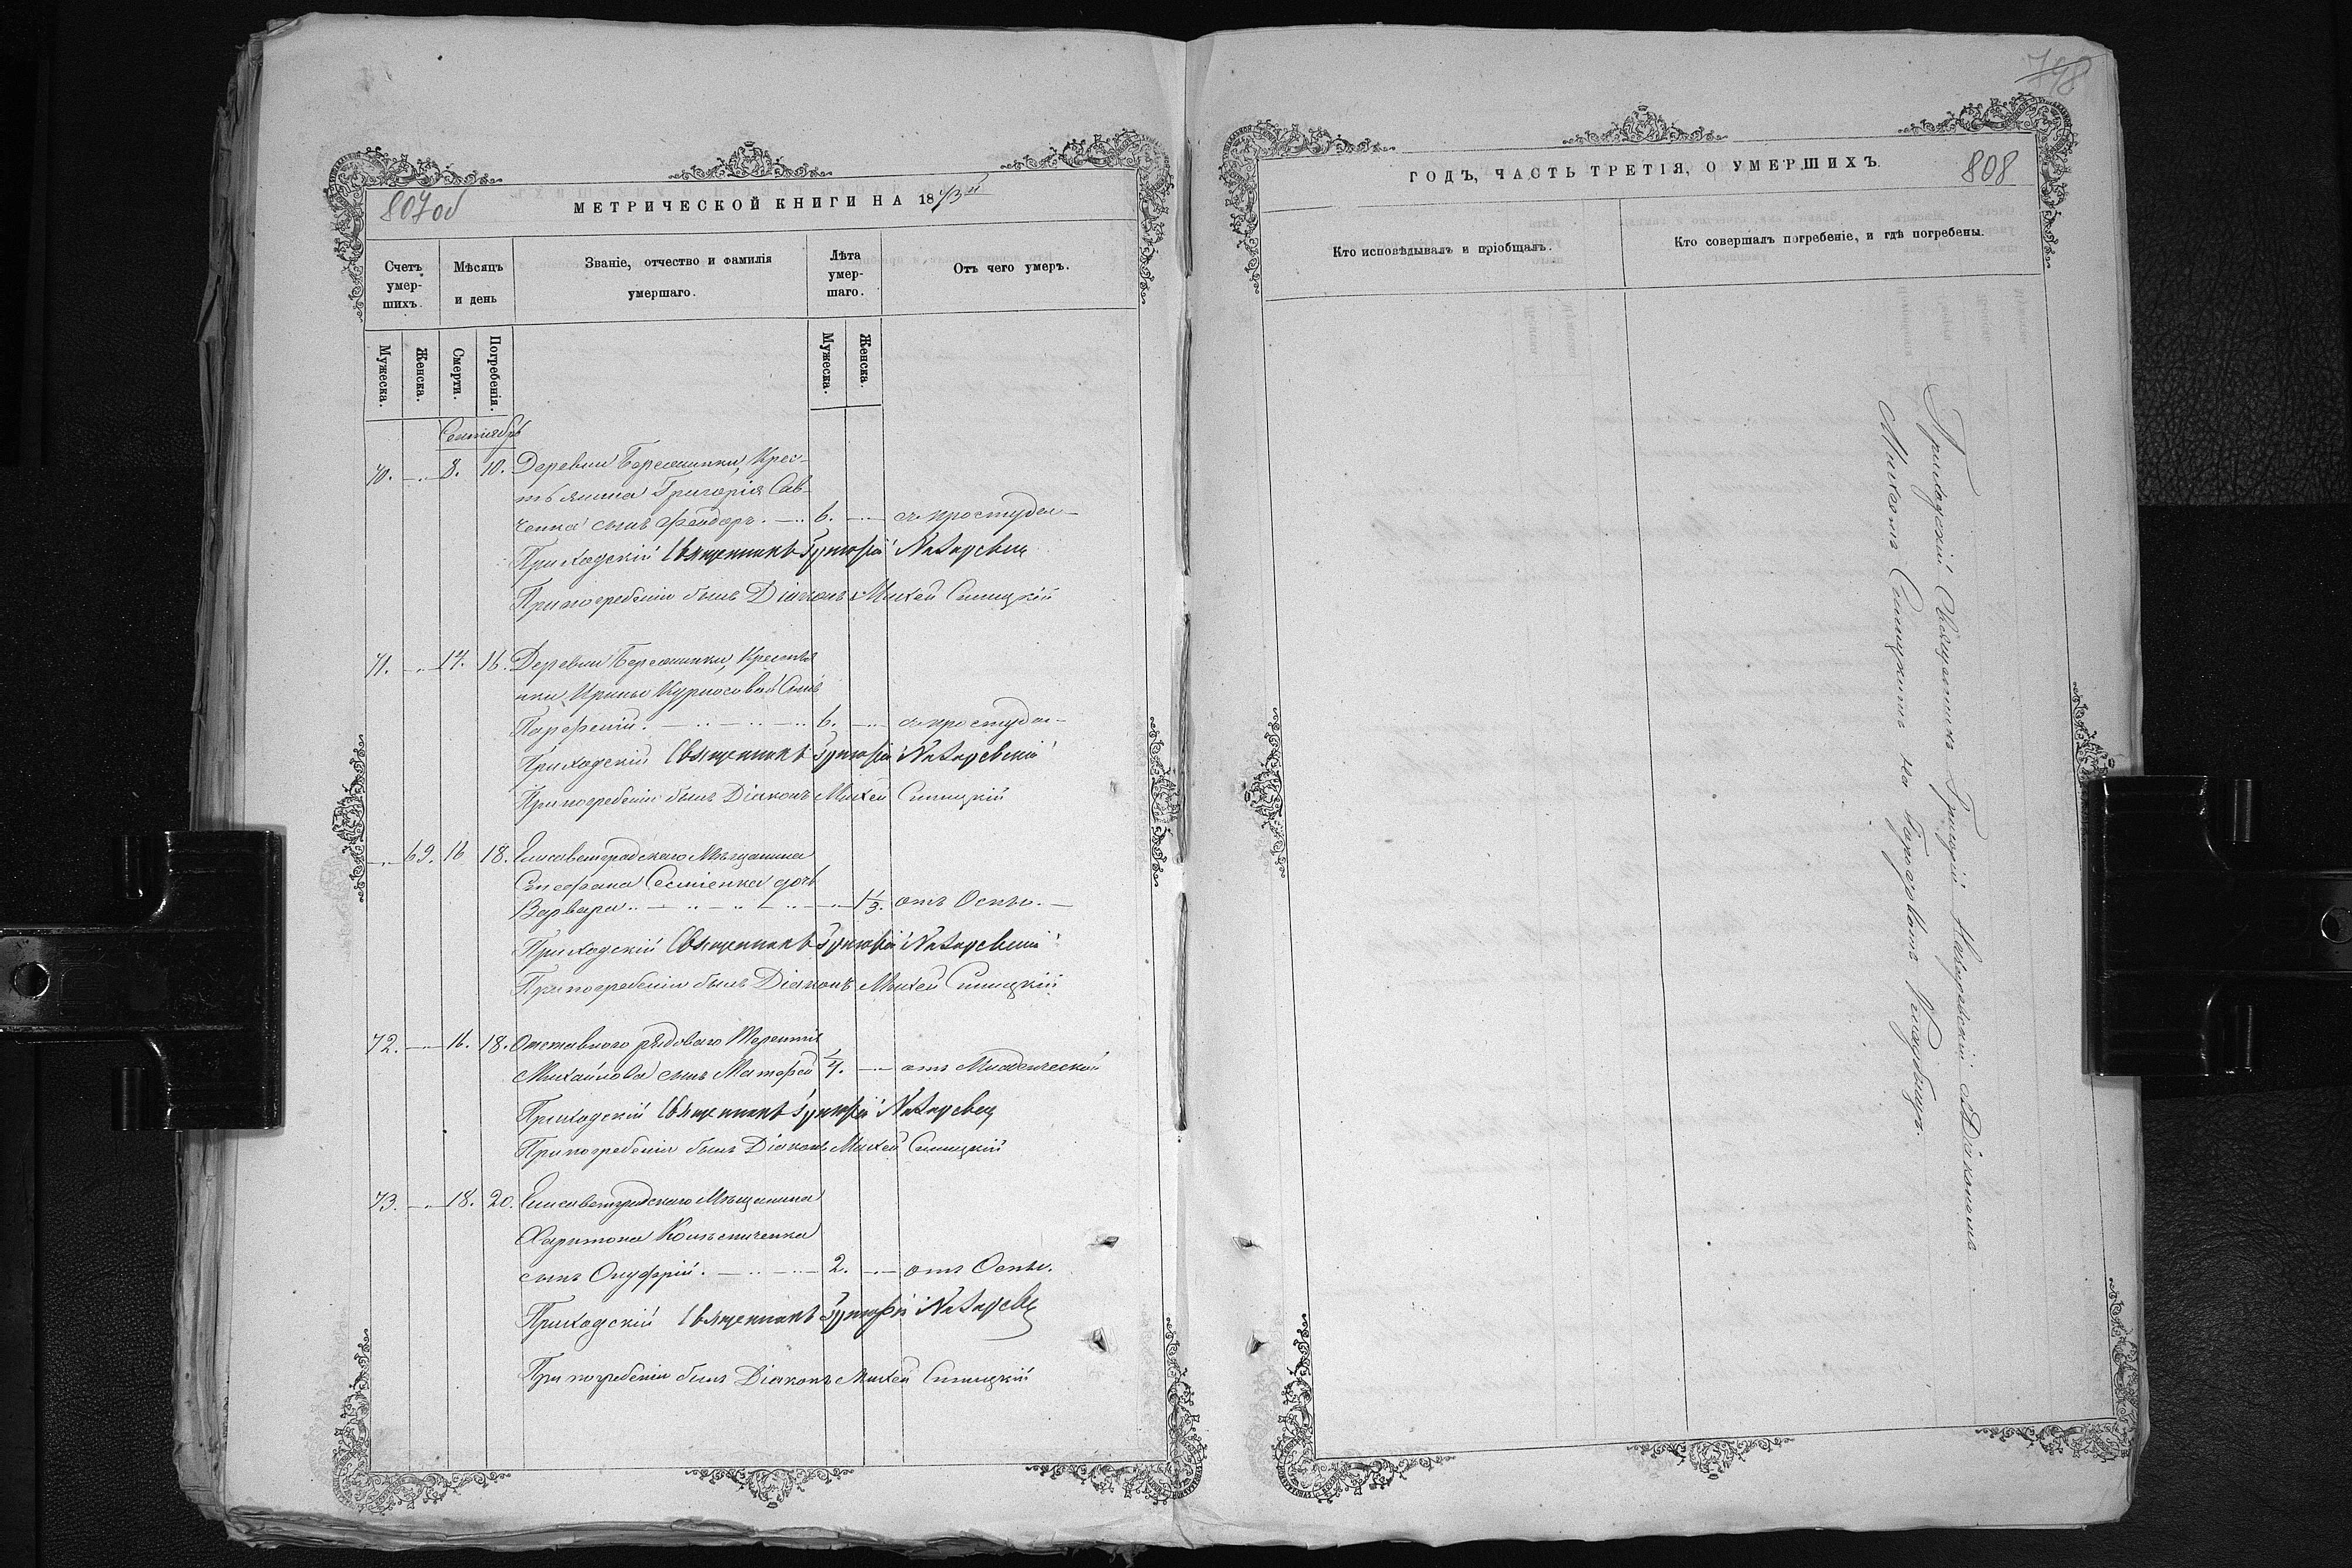 807 об
МЕТРИЧЕСКОЙ КНИГИ НА 1873 й
Счетъ умершихъ.
Мѣсяцъ и день
Званіе, отчество и фамилія умершаго.
Лѣта умершаго.
Отъ чего умеръ.
Мужеска.
Женска.
Смерти.
Погребенія.
Мужеска.
Женска.
Сентябрь
70. 8. 10. Деревни Крес-
тьянина Григорія Сав-
ченка сынъ Феодоръ. 6. отъ простуды
Приходскій Священникъ Григорій
При погребеніи былъ Діаконъ Михей Синицкій
71. 14. 16. Деревни Крестья
нки Ирины Курносовой Сынъ
Парфеній. 6. отъ простуды
Приходскій Священникъ Григорій
При погребеніи былъ Діаконъ Михей Синицкій
69. 16 18. Елисаветградскаго Мѣщанина
Стефана дочь
Варвара 1/3. отъ Оспы.
Приходскій Священникъ Григорій
При погребеніи былъ Діаконъ Михей Синицкій
72. 16. 18. Отставного рядового Терентія
Михайлова сынъ Матфей 1/4. отъ Младенческой
Приходскій Священникъ Григорій
При погребеніи былъ Діаконъ Михей Синицкій
73. 18. 20. Елисаветградскаго Мѣщанина
Харитона
сынъ Онуфрій. 2. отъ Оспы.
Приходскій Священникъ Григорій
При погребеніи былъ Діаконъ Михей Синицкій
748
808
ГОДЪ, ЧАСТЬ ТРЕТІЯ, О УМЕРШИХЪ
Кто исповѣдывалъ и пріобщалъ.
Кто совершалъ погребеніе, и гдѣ погребены.
Приходскій Священникъ Григорій съ Діакономъ
Михеемъ Синицкимъ на Кладбищѣ.